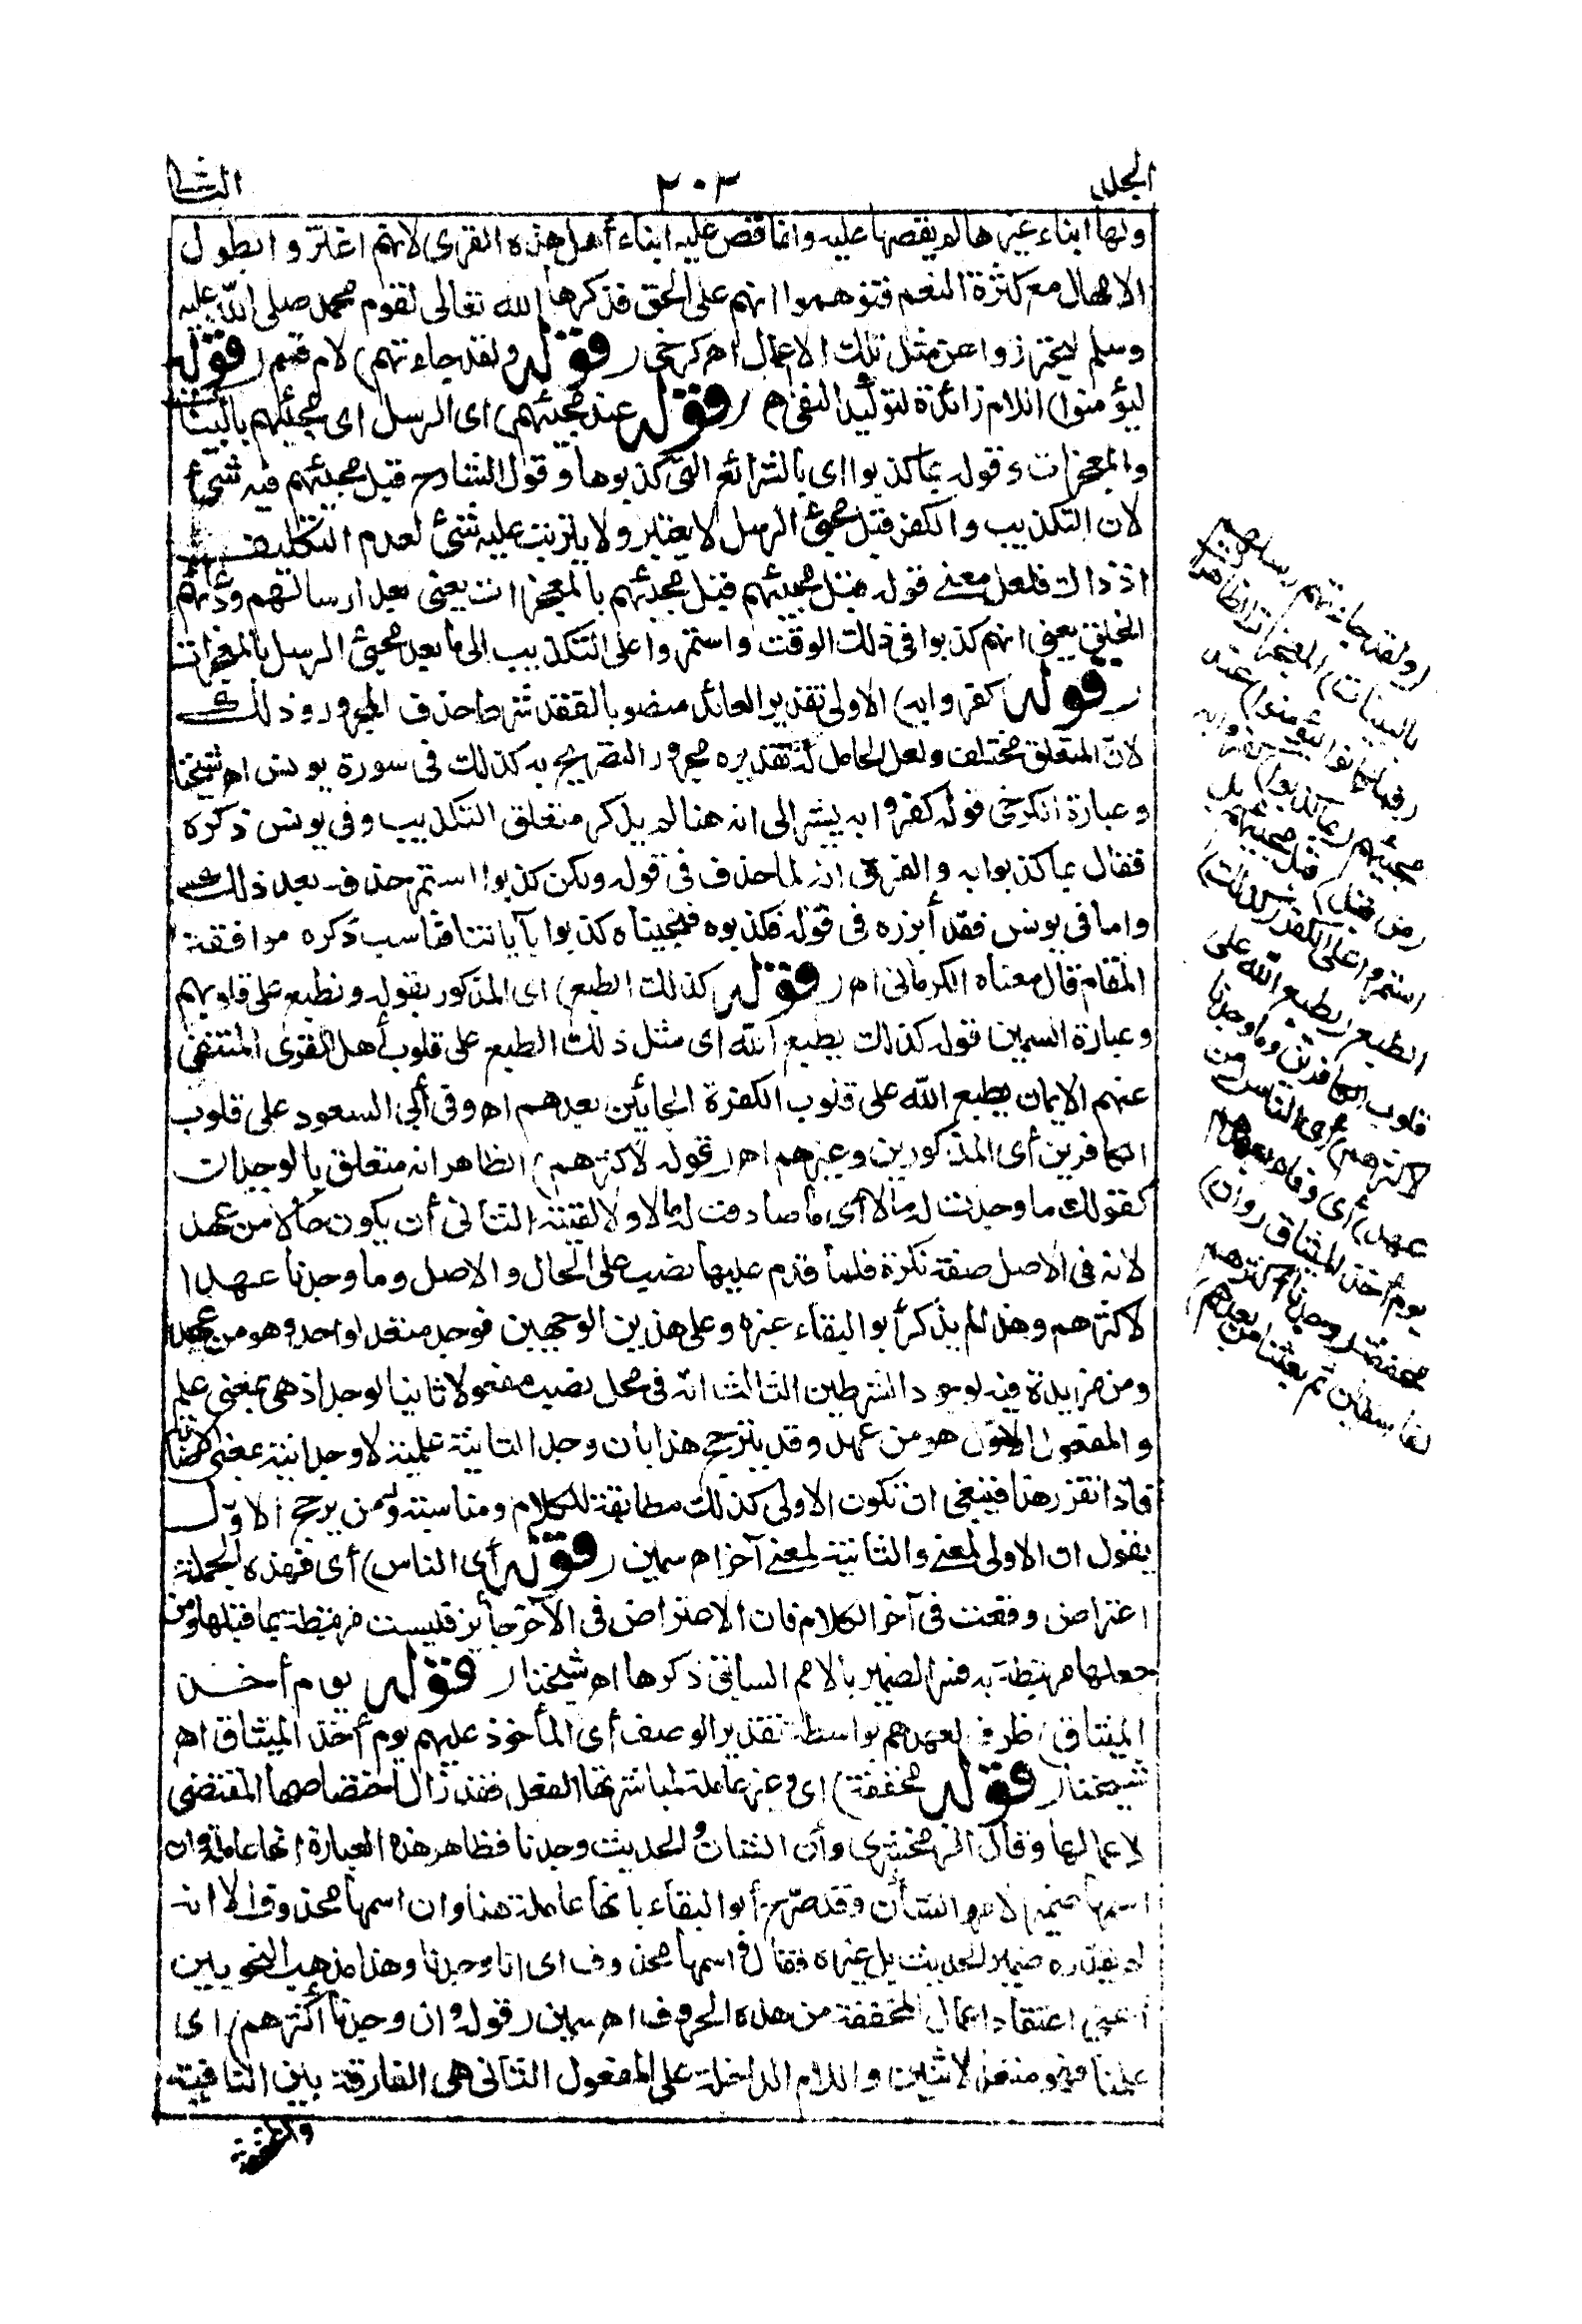 الجلد
٢٠٣
الثا
ولها انباء غيرها لم يقصها عليه وانما قص عليه انباء أهل هذه القرى لانهم اغتروا بطول
الامهال مع كثرة النعم فتوهموا انهم على الحق فذكرها الله تعالى لقوم محمد صلى الله عليه
وسلم ليحترزوا عن مثل تلك الاعمال اه كرخى (قوله ولقد جاءتهم) لام قسم (قوله
ليؤمنوا) اللام زائدة لتوكيد النفى اه (قوله عند مجيئهم) اى الرسل اى مجيئهم بالبينات
والمعجزات وقوله بما كذبوا اى بالشرائع التى كذبوها وقول الشارح قبل مجيئهم فيه شئ
لان التكذيب والكفر قبل مجئ الرسل لا يعتبر ولا يترتب عليه شئ لعدم التكليف
اذ ذاك فلعل معنى قوله قبل مجيئهم قبل مجيئهم بالمعجزات يعنى بعد ارسالهم ودعوتهم
الخلق يعنى انهم كذبوا فى ذلك الوقت واستمروا على التكذيب الى ما بعد مجئ الرسل بالمعجزات
(قوله كفروا به) الاولى تقدير العائد منصوبا لفقد شرط حذف المجرور وذلك
لان المتعلق مختلف ولعل الحامل له على تقديره مجرور التصريح به كذلك فى سورة يونس اه شيخنا
وعبارة الكرخى قوله كفروا به يشير الى انه هنا لم يذكر متعلق التكذيب وفى يونس ذكره
فقال بما كذبوا به والفرق انه لما حذف فى قوله ولكن كذبوا استمر حذفه بعد ذلك
واما فى يونس فقد أبرزه فى قوله فكذبوه فنجيناه كذبوا بآياتنا فناسب ذكره موافقة
المقام قال معناه الكرمانى اه (قوله كذلك الطبع) اى المذكور بقوله ونطبع على قلوبهم
وعبارة السمين قوله كذلك يطبع الله اى مثل ذلك الطبع على قلوب أهل القرى المنتفى
عنهم الايمان يطبع الله على قلوب الكفرة الجائين بعدهم اه وفى أبى السعود على قلوب
الكافرين أى المذكورين وغيرهم اه (قوله لاكثرهم) الظاهر انه متعلق بالوجدان
كقولك ما وجدت له مالا أى ما صادفت له مالا ولا لقيته الثانى أن يكون حالا من عهد
لانه فى الاصل صفة نكرة فلما قدم عليها نصب على الحال والاصل وما وجدنا عهدا
لاكثرهم وهذا لم يذكر أبو البقاء غيره وعلى هذين الوجهين فوجد متعد لواحد وهو من عهد
ومن مزيدة فيه لوجود الشرطين الثالث انه فى محل نصب مفعولا ثانيا لوجد اذ هى بمعنى علم
والمفعول الاول هو من عهد وقد يترجح هذا بأن وجد الثانية علمية لا وجدانية بمعنى الاصابة
فاذا تقرر هذا فينبغى ان تكون الاولى كذلك مطابقة للكلام ومناسبة ومن يرجح الاول
يقول ان الاولى لمعنى والثانية لمعنى آخر اه سمين (قوله أى الناس) أى فهذه الجملة
اعتراض وقعت فى آخر الكلام فان الاعتراض فى الآخر جائز فليست مرتبطة بما قبلها ومن
جعلها مرتبطة به فسر الضمير بالامم السابق ذكرها اه شيخنا (قوله يوم أخذ
الميثاق) ظرف لعهدهم بواسطة تقدير الوصف أى المأخوذ عليهم يوم أخذ الميثاق اه
شيخنا (قوله مخففة) اى وغير عاملة لمباشرتها الفعل فقد زال اختصاصها المقتضى
لاعمالها وقال الزمخشرى وأن الشأن والحديث وجدنا فظاهر هذه العبارة انها عاملة وان
اسمها ضمير الامر والشأن وقد صرح أبو البقاء بانها عاملة هنا وان اسمها محذوف الا انه
لم يقدره ضمير الحديث بل غيره فقال واسمها محذوف اى انا وجدنا وهذا مذهب النحويين
أعنى اعتقاد اعمال المخففة من هذه الحروف اه سمين (قوله وان وجدنا أكثرهم) اى
علمنا فهو متعد لاثنين واللام الداخلة على المفعول الثانى هى الفارقة بين النافية
والمخففة
(ولقد جاءتهم رسلهم
بالبينات) المعجزات الظاهرات
(فما كانوا ليؤمنوا) عند
مجيئهم (بما كذبوا) كفروا به
(من قبل) قبل مجيئهم بل
استمروا على الكفر (كذلك)
الطبع (يطبع الله على
قلوب الكافرين وما وجدنا
لاكثرهم) أى الناس (من
عهد) أى وفاء بعهدهم
يوم أخذ الميثاق (وان)
مخففة (وجدنا أكثرهم
لفاسقين ثم بعثنا من بعدهم)